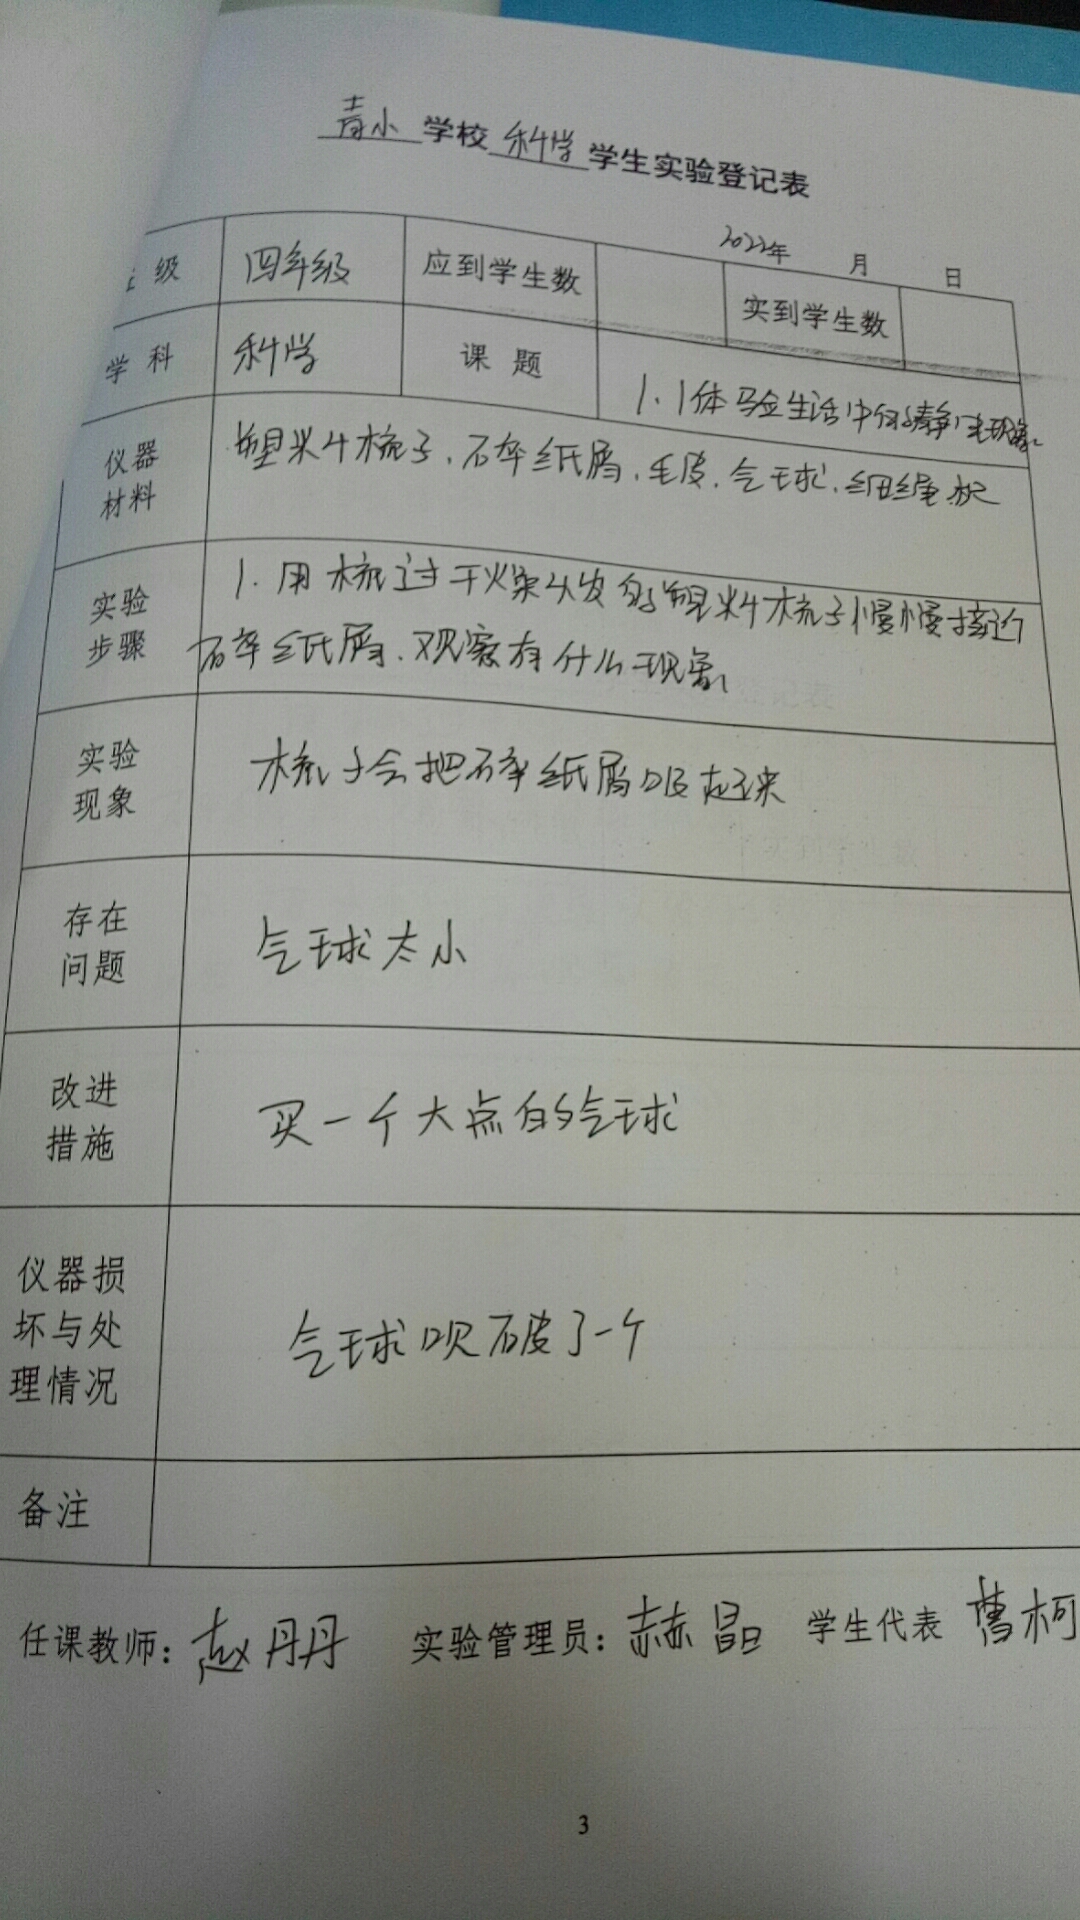 青小学校科学学生实验登记表
2022年 月 日
级 四年级 应到学生数 实到学生数
学科 科学 课题 1.1体验生活中的静电现象
仪器
材料
塑料梳子、碎纸屑、毛皮、气球、细绳、尺
实验
步骤
1. 用梳过干燥头发的塑料梳子慢慢接近
碎纸屑、观察有什么现象
实验
现象
梳子会把碎纸屑吸起来
存在
问题
气球太小
改进
措施
买一个大点的气球
仪器损
坏与处
理情况
气球吹破了一个
备注
任课教师：赵丹丹 实验管理员：赫晶 学生代表 曹柯
3